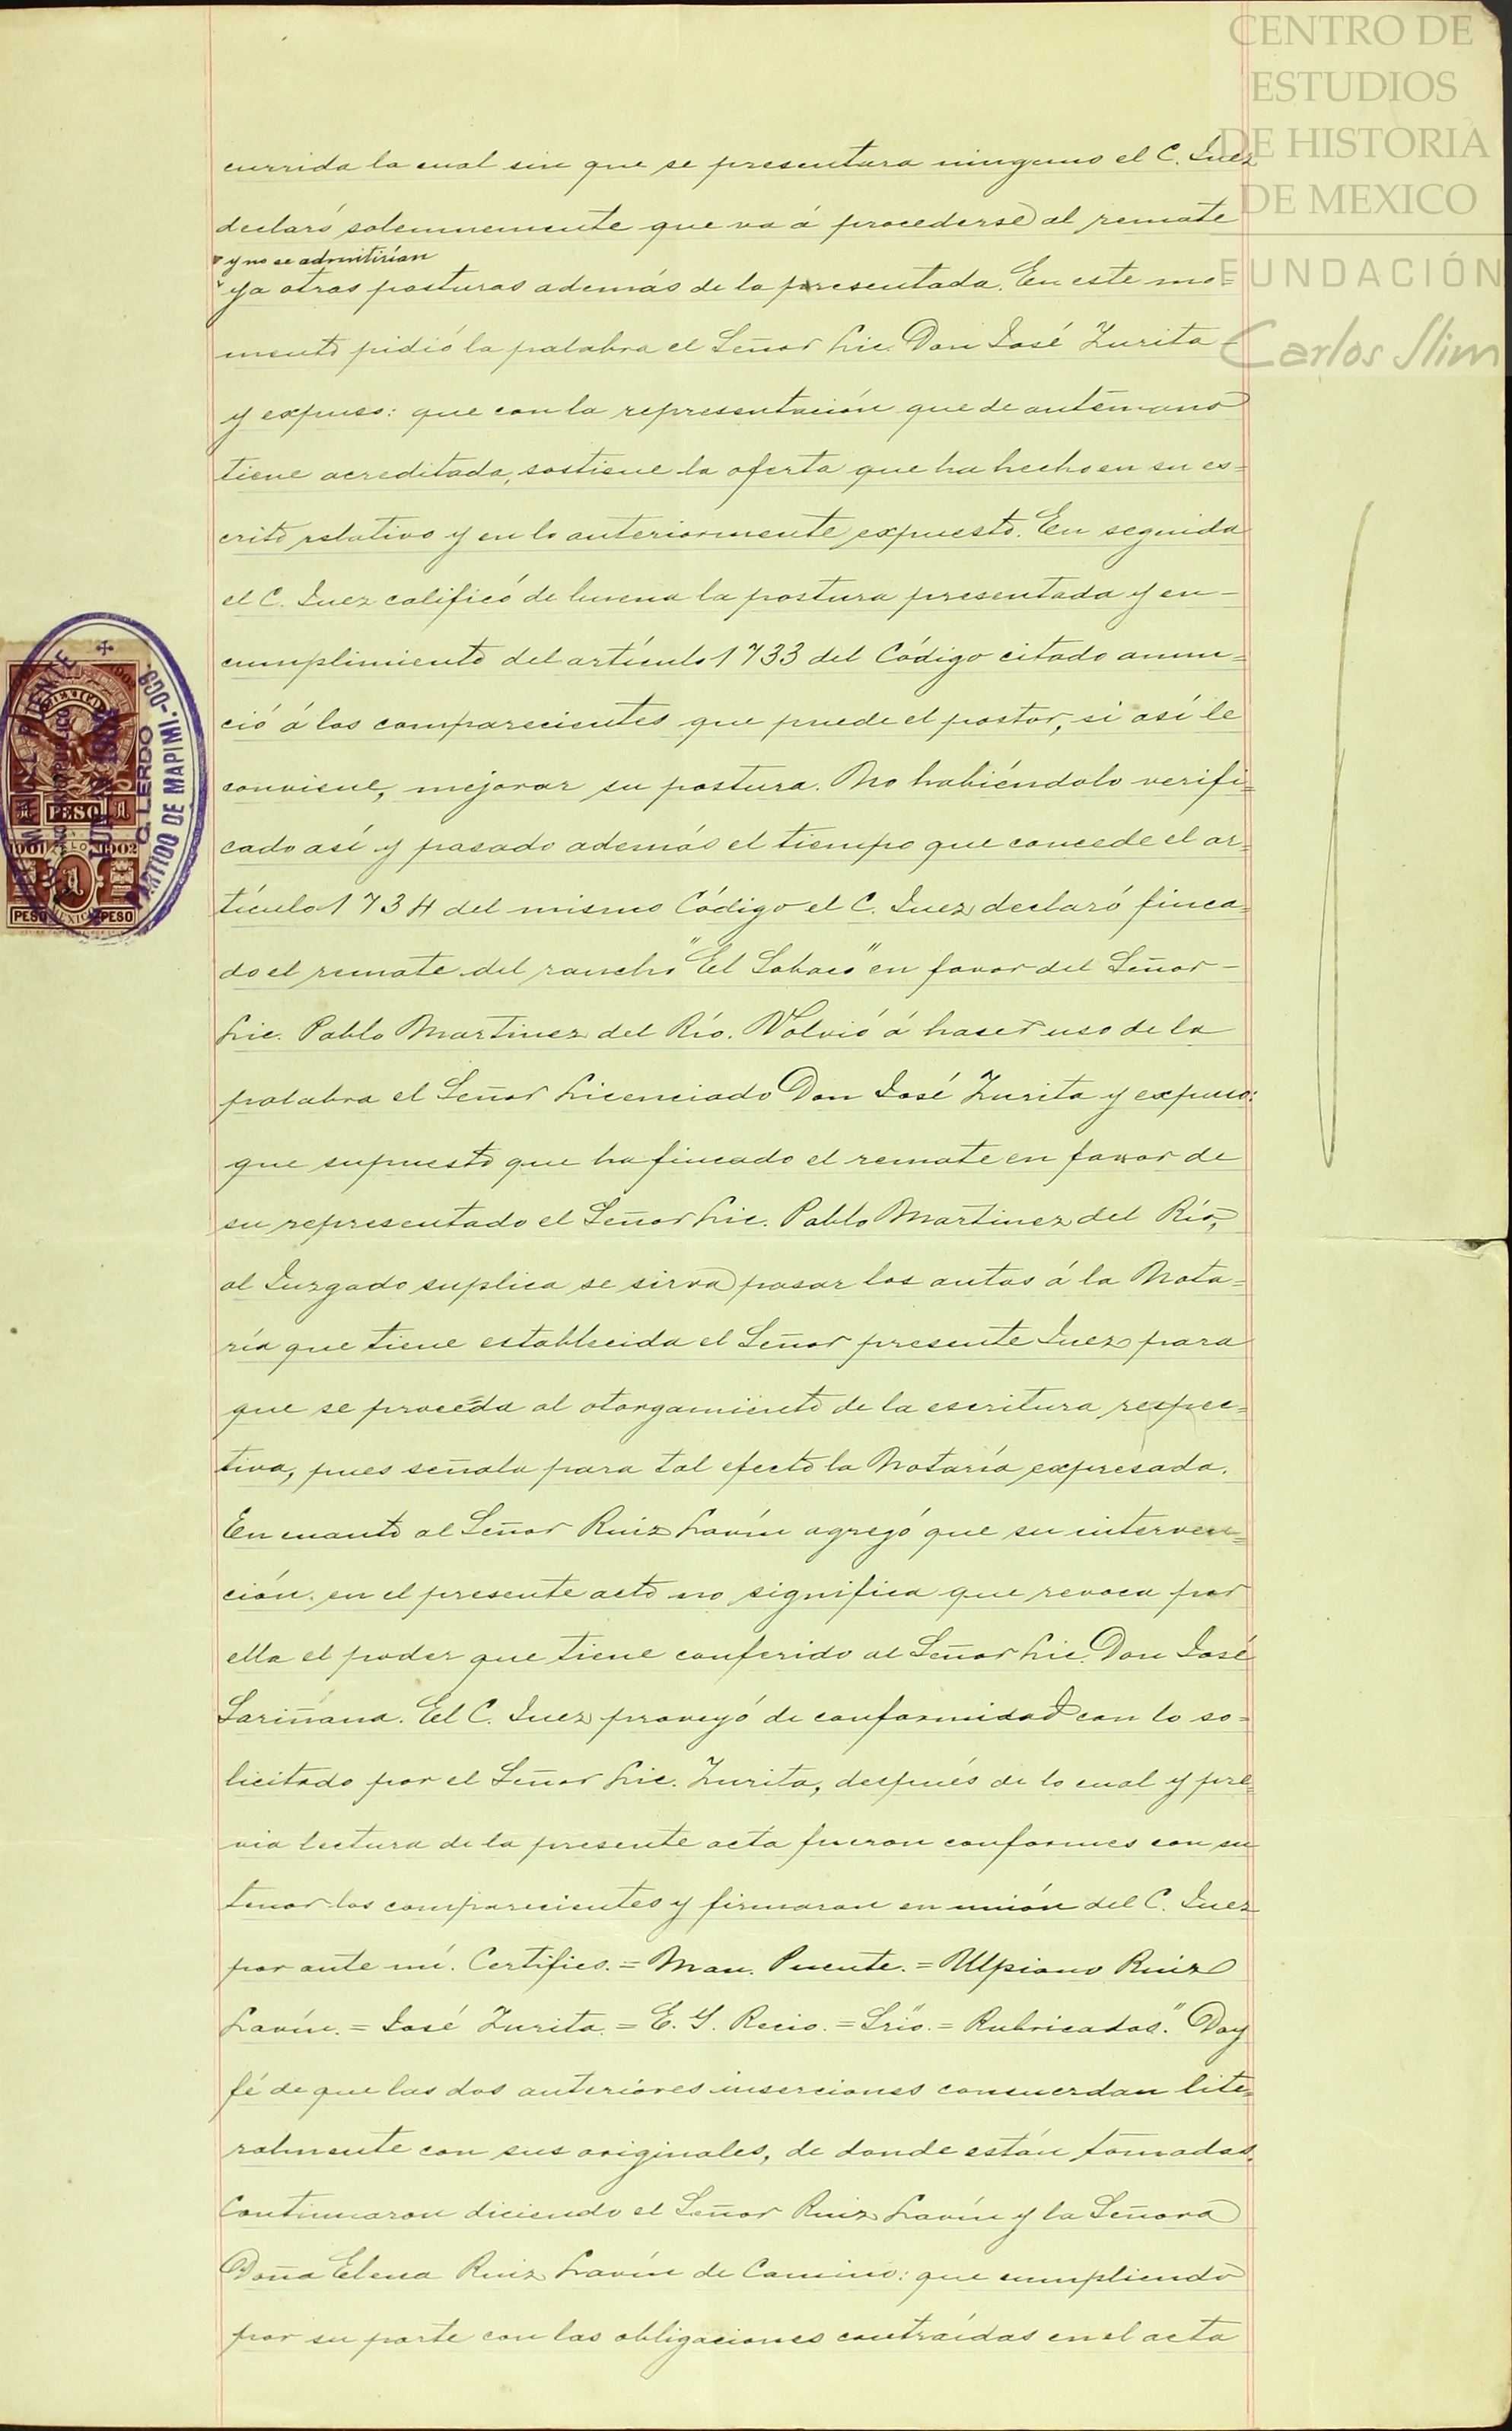 CENTRO DE
ESTUDIOS
DE HISTORIA
DE MEXICO
FUNDACIÓN
Carlos Slim
currida la cual sin que se presentara ninguno el C. Juez
declaró solemnemente que va á procederse al remate
y no se admitirían
ya otras posturas además de la presentada. En este mo=
mento pidió la palabra el Señor Lic. Don José Zurita
y expuso: que con la representación que de antemano
tiene acreditada, sostiene la oferta que ha hecho en su es=
crito relativo y en lo anteriormente expuesto. En seguida
el C. Juez calificó de buena la postura presentada y en-
cumplimiento del artículo 1733 del Código citado anun=
ció á los comparecientes que puede el postor, si así le
conviene, mejorar su postura. No habiéndolo verifi=
cado así y pasado además el tiempo que concede el ar=
tículo 1734 del mismo Código el C. Juez declaró finca=
do el remate del rancho "El Sobaco" en favor del Señor-
Lic. Pablo Martinez del Río. Volvió á hacer uso de la
palabra el Señor Licenciado Don José Zurita y expuso:
que supuesto que ha fincado el remate en favor de
su representado el Señor Lic. Pablo Martinez del Río,
al Juzgado suplica se sirva pasar los autos á la Nota=
ría que tiene establecida el Señor presente Juez para
que se proceda al otorgamiento de la escritura respec=
tiva, pues señala para tal efecto la Notaría expresada.
En cuanto al Señor Ruiz Lavín agregó que su interven=
ción en el presente acto no significa que revoca por
ella el poder que tiene conferido al Señor Lic. Don José
Sariñana. El C. Juez proveyó de conformidad con lo so=
licitado por el Señor Lic. Zurita, después de lo cual y pre=
via lectura de la presente acta fueron conformes con su
tenor los comparecientes y firmaron en unión del C. Juez
por ante mí. Certifico. = Man. Puente. = Ulpiano Ruiz
Lavín. = José Zurita. = E. G. Recio. = Srio. = Rubricados." Doy
fé de que las dos anteriores inserciones concuerdan lite=
ralmente con sus originales, de donde están tomadas.
Continuaron diciendo el Señor Ruiz Lavín y la Señora
Doña Elena Ruiz Lavín de Camino: que cumpliendo
por su parte con las obligaciones contraídas en el acta
MANUEL PUENTE
NOTARIO PUBLICO
C. LERDO
PARTIDO DE MAPIMI.-DGO.
1 PESO 1
1901 1902
1
PESO MEXICO PESO